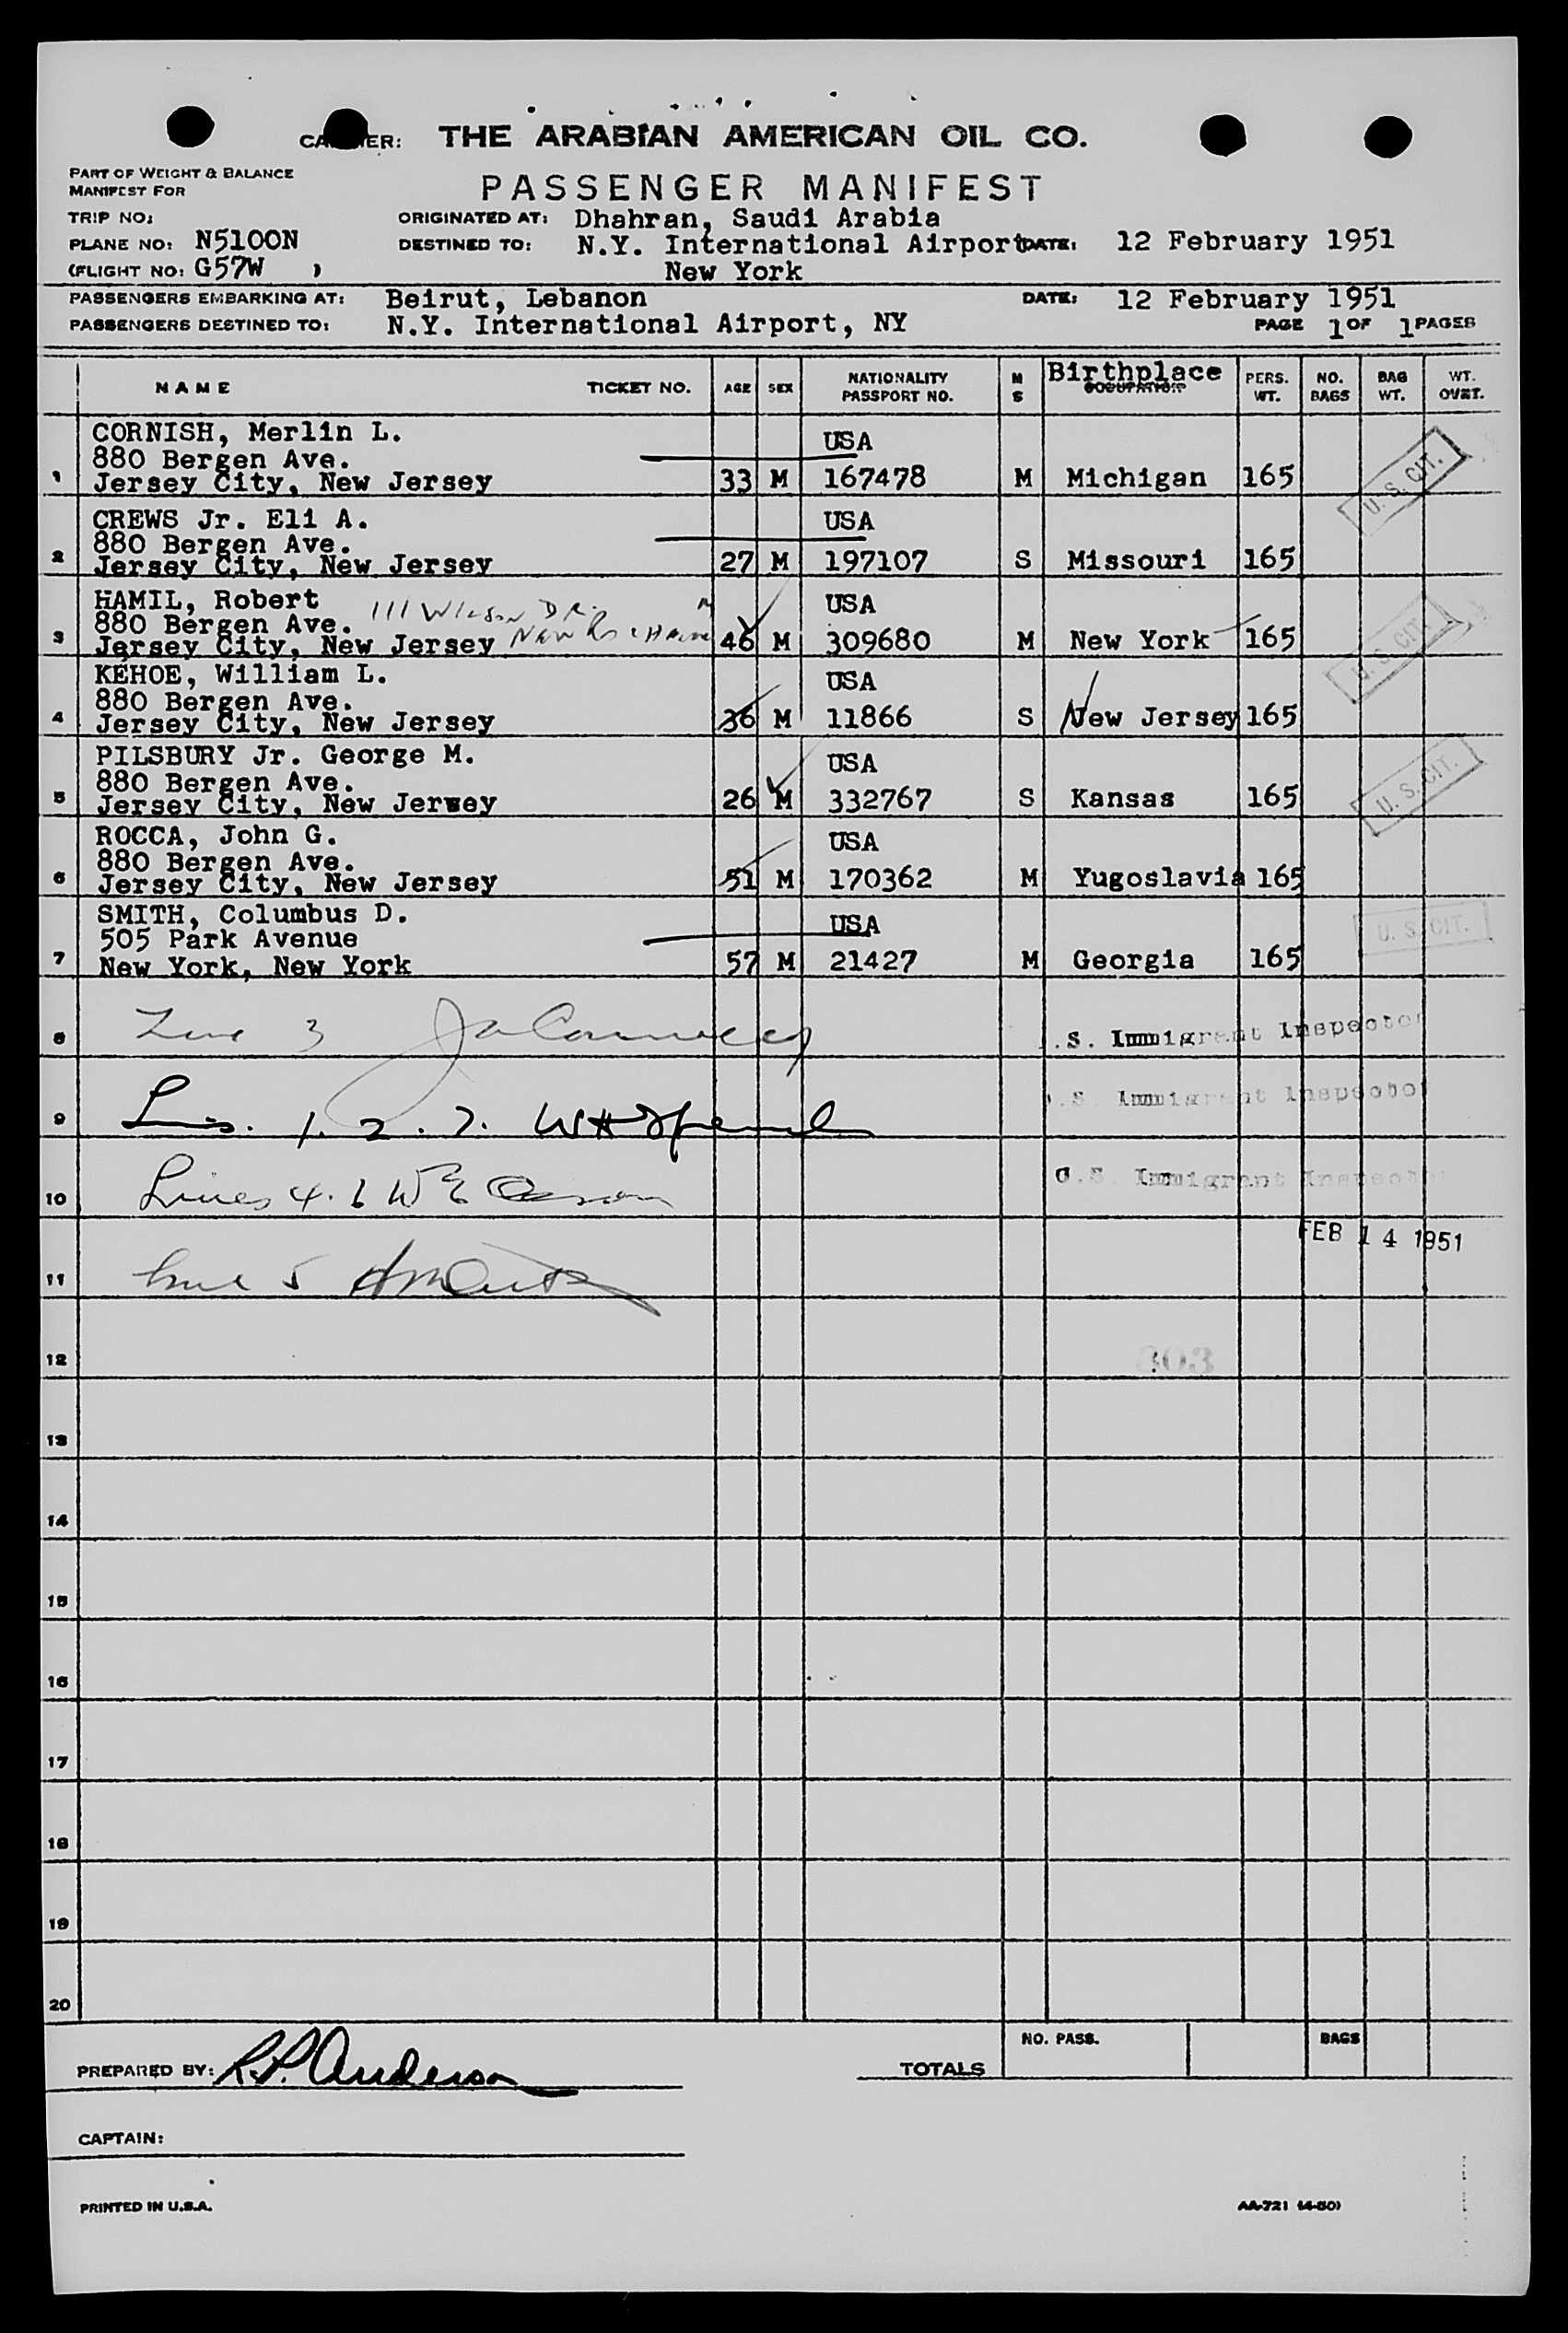 CARRIER: THE ARABIAN AMERICAN OIL CO.
PART OF WEIGHT & BALANCE
MANIFEST FOR
PASSENGER MANIFEST
TRIP NO:
ORIGINATED AT: Dhahran, Saudi Arabia
PLANE NO: N5100N
DESTINED TO: N.Y. International Airport DATE: 12 February 1951
(FLIGHT NO: G57W )
New York
PASSENGERS EMBARKING AT: Beirut, Lebanon DATE: 12 February 1951
PASSENGERS DESTINED TO: N.Y. International Airport, NY PAGE 1 OF 1 PAGES
NAME TICKET NO. AGE SEX NATIONALITY PASSPORT NO. M S Birthplace OCCUPATION PERS. WT. NO. BAGS BAG WT. WT. OVRT.
CORNISH, Merlin L. USA
880 Bergen Ave.
1 Jersey City, New Jersey 33 M 167478 M Michigan 165 U. S. CIT.
CREWS Jr. Eli A. USA
880 Bergen Ave.
2 Jersey City, New Jersey 27 M 197107 S Missouri 165
HAMIL, Robert USA
880 Bergen Ave. 111 Wilson Dr.
3 Jersey City, New Jersey New 46 M 309680 M New York 165 U. S. CIT.
KEHOE, William L. USA
880 Bergen Ave.
4 Jersey City, New Jersey 36 M 11866 S New Jersey 165
PILSBURY Jr. George M. USA
880 Bergen Ave.
5 Jersey City, New Jersey 26 M 332767 S Kansas 165 U. S. CIT.
ROCCA, John G. USA
880 Bergen Ave.
6 Jersey City, New Jersey 51 M 170362 M Yugoslavia 165
SMITH, Columbus D. USA
505 Park Avenue
7 New York, New York 57 M 21427 M Georgia 165 U. S. CIT.
8 Line 3 .S. Immigrant Inspector
9 Lines. 1. 2. 7. .S. Immigrant Inspector
10 Lines 4. 6 U.S. Immigrant Inspector
FEB 14 1951
11 Line 5
12 303
13
14
15
16
17
18
19
20
NO. PASS. BAGS
PREPARED BY: R.P. Anderson TOTALS
CAPTAIN:
PRINTED IN U.S.A. AA-721 (4-50)